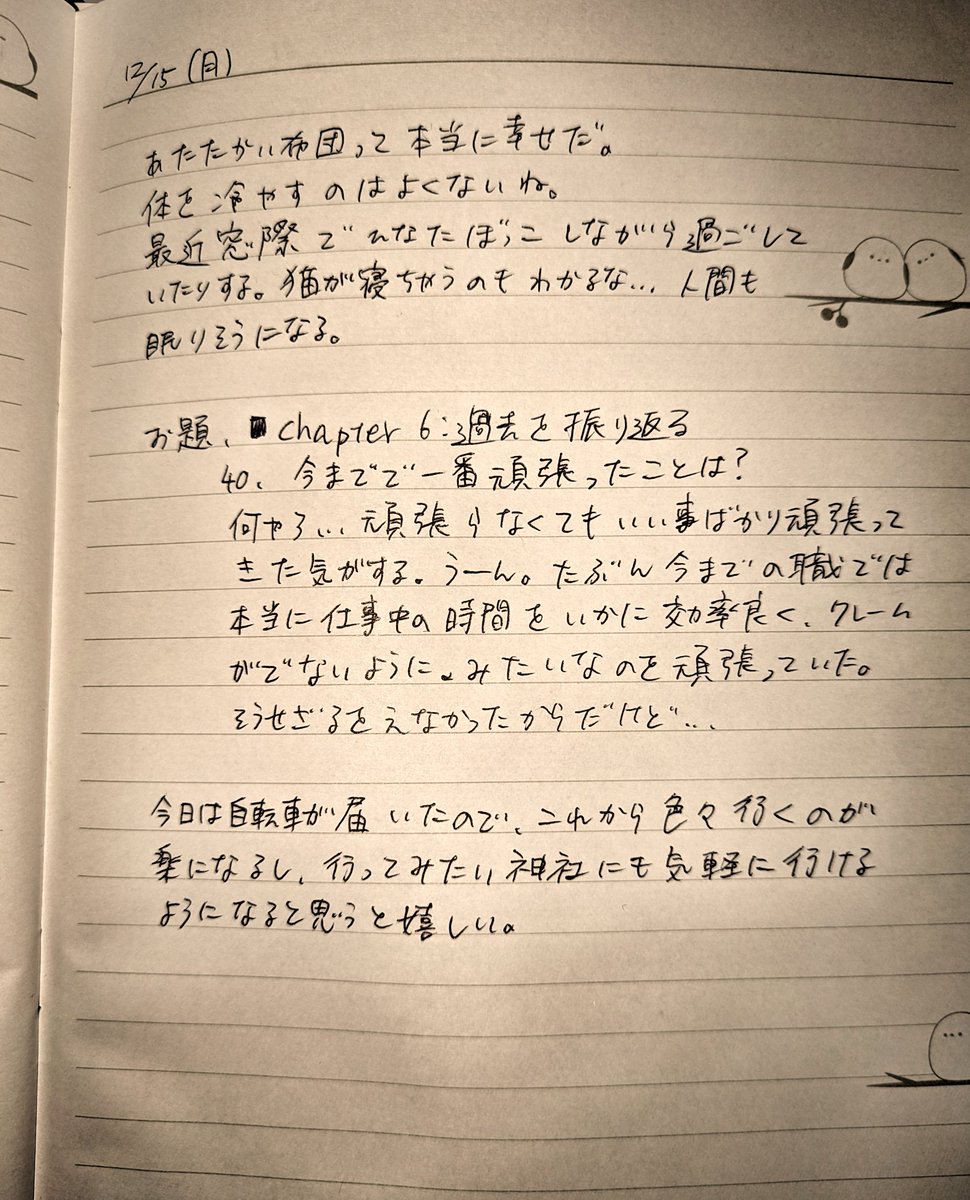 12/15(月)
あたたかい布団って本当に幸せだ。
体を冷やすのはよくないね。
最近窓際でひなたぼっこしながら過ごして
いたりする。猫が寝ちゃうのもわかるな… 人間も
眠りそうになる。
お題、chapter 6:過去を振り返る
40、今までで一番頑張ったことは?
何やろ… 頑張らなくてもいい事ばかり頑張って
きた気がする。うーん。たぶん今までの職では
本当に仕事中の時間をいかに効率良く、クレーム
がでないように。みたいなのを頑張っていた。
そうせざるをえなかったからだけど…
今日は自転車が届いたので、これから色々行くのが
楽になるし、行ってみたい神社にも気軽に行ける
ようになると思うと嬉しい。